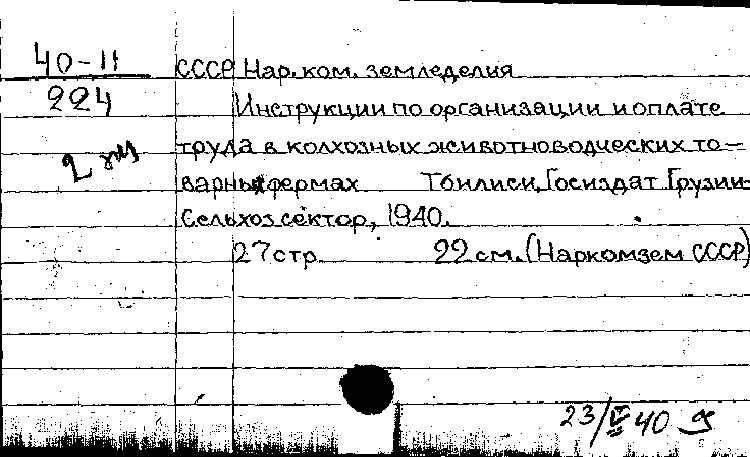 40-11 СССР Нар.ком. земледелия
224 Инструкции по организации и оплате
труда в колхозных животноводческих то-
варных фермах Тбилиси, Госиздат Грузии
Сельхоз сектор, 1940.
27 стр. 22 см. (Наркомзем СССР)
23/VI 40